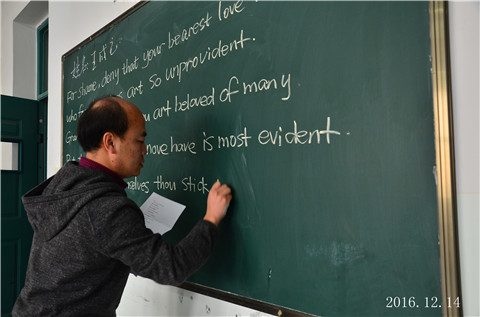 姓名:王成
For shame, deny that your bearest love
who art so unprovident.
art beloved of many
nove have is most evident.
selves thou stick
2016.12.14